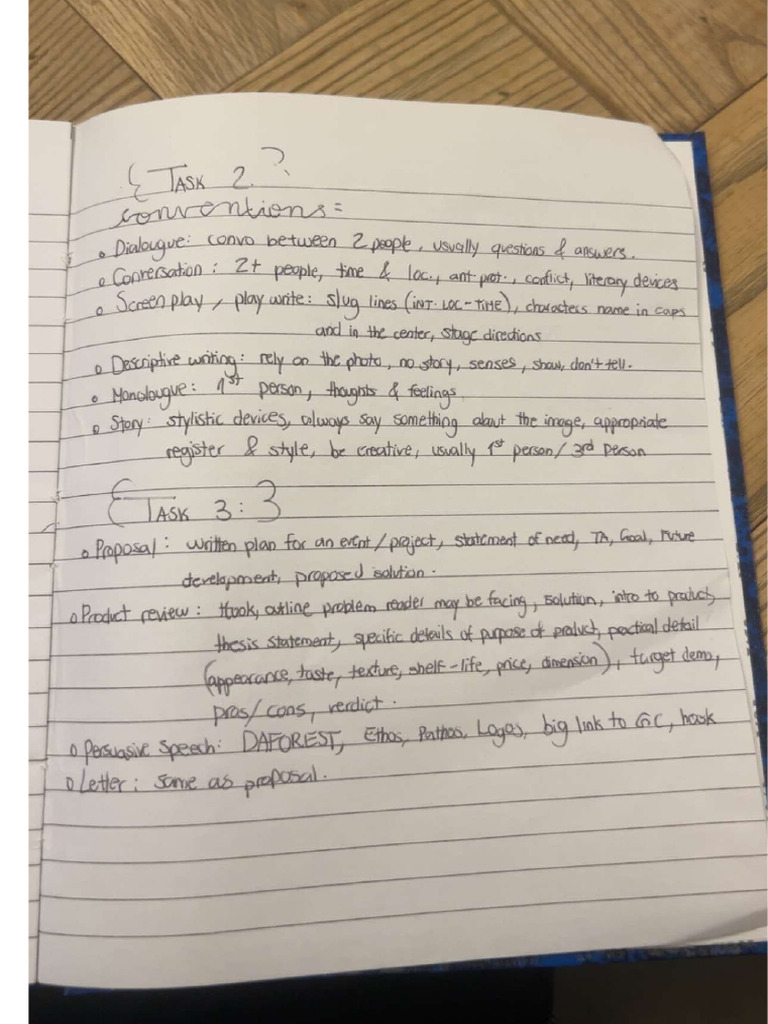 { TASK 2. }
conventions =
Dialougue: convo between 2 people, usually questions & answers.
Conversation: 2+ people, time & loc., ant. prot., conflict, literary devices
Screenplay / play write: slug lines (INT. LOC - TIME), characters name in caps
and in the center, stage directions
Descriptive writing: rely on the photo, no story, senses, show, don't tell.
Monolougue: 1st person, thoughts & feelings
Story: stylistic devices, always say something about the image, appropriate
register & style, be creative, usually 1st person / 3rd person
{ TASK 3: }
Proposal: written plan for an event/project, statement of need, TA, Goal, Future
development, proposed solution.
Product review: Hook, outline problem reader may be facing, solution, intro to product,
thesis statement, specific details of purpose of product, practical detail
(appearance, taste, texture, shelf-life, price, dimension), target demo,
pros/cons, verdict.
Persuasive speech: DAFOREST, Ethos, Pathos, Logos, big link to GC, hook
Letter: same as proposal.